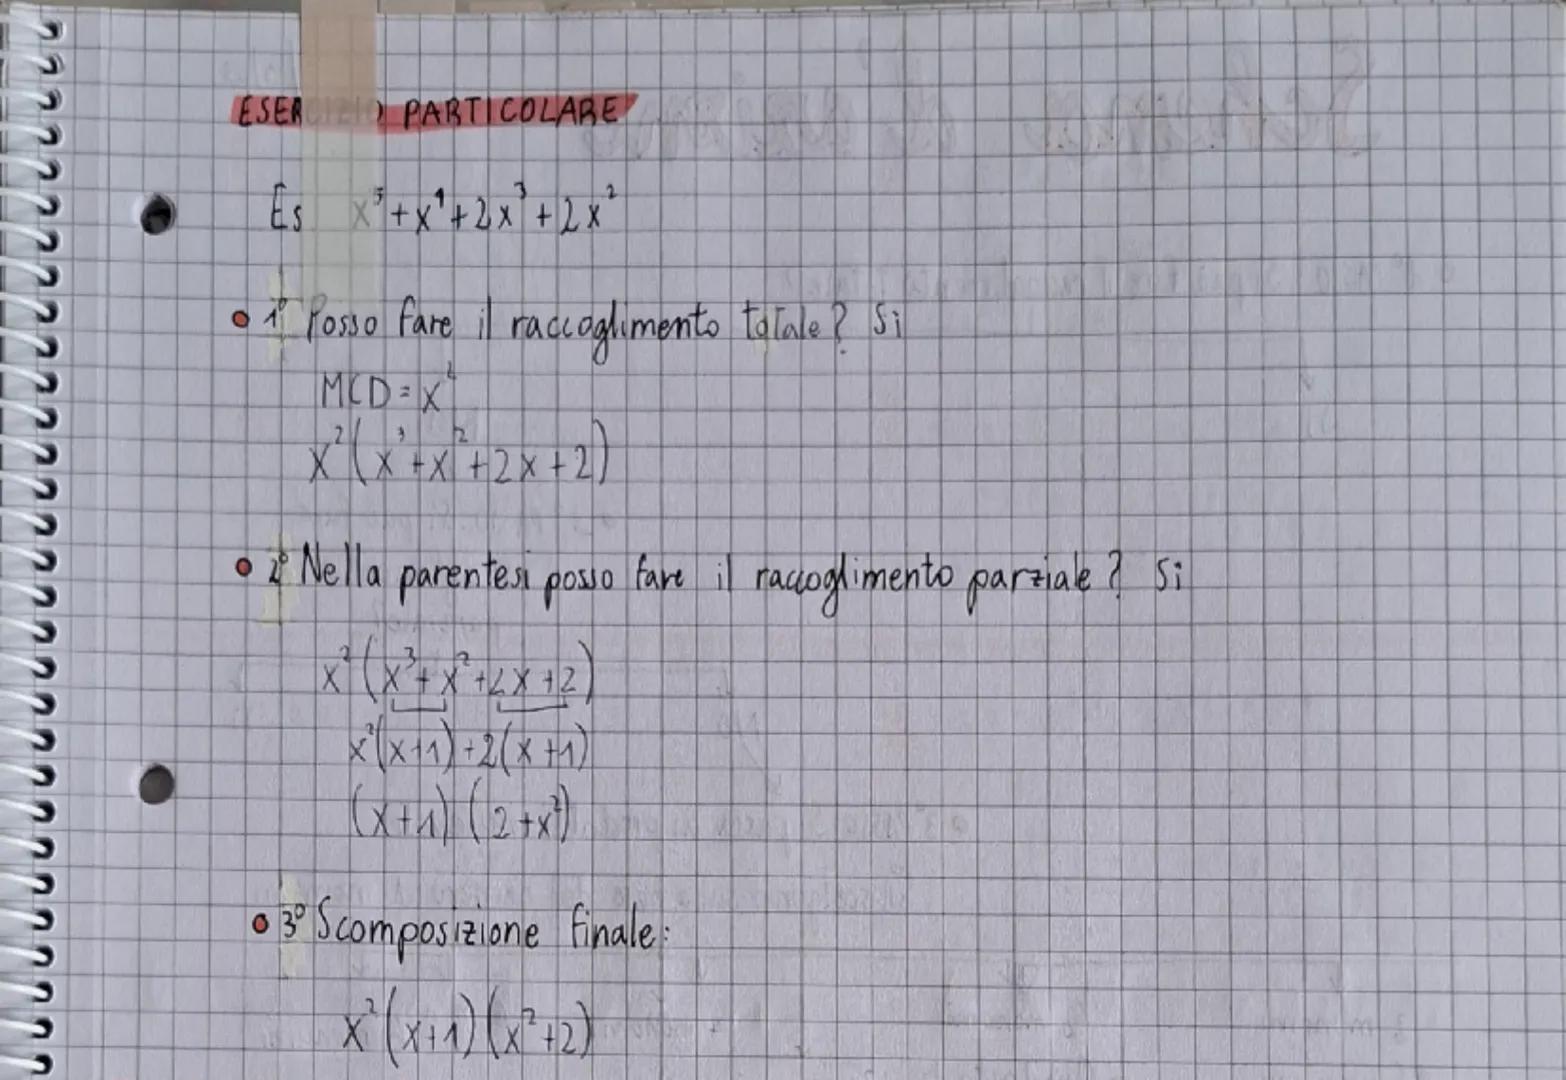 ESERCIZIO PARTICOLARE
Es x⁵+x⁴+2x³+2x²
1° Posso fare il raccoglimento totale? Si
MCD=x²
x²(x³+x²+2x+2)
2° Nella parentesi posso fare il raccoglimento parziale? Si
x²(x³+x²+2x+2)
x²(x+1)+2(x+1)
(x+1)(2+x²)
3° Scomposizione finale:
x²(x+1)(x²+2)